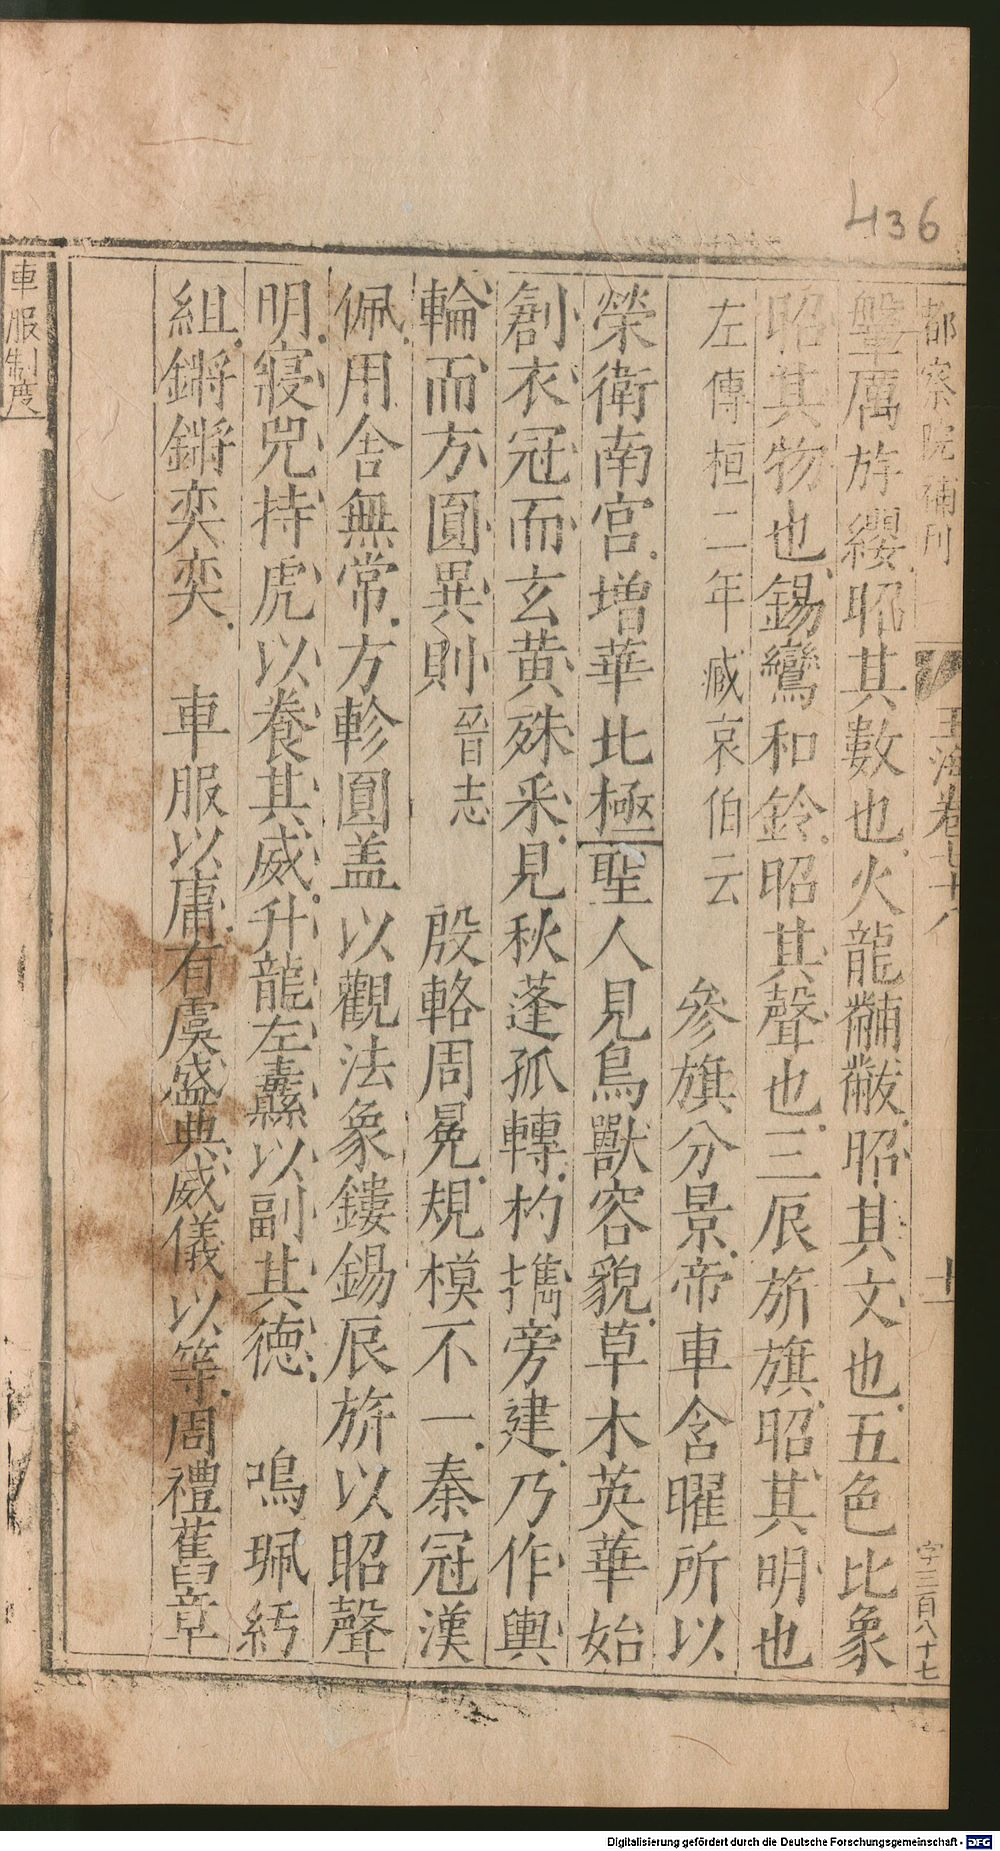 436
都察院補刊
玉海卷七十八
十一
字三百八十七
鞶厲斿纓昭其數也火龍黼黻昭其文也五色比象
昭其物也錫鸞和鈴昭其聲也三辰旂旗昭其明也
左傳桓二年臧哀伯云 參旗分景帝車含曜所以
榮衛南宮增華北極聖人見鳥獸容貌草木英華始
創衣冠而玄黄殊釆見秋蓬孤轉杓攜旁建乃作輿
輪而方圓異則晉志 殷輅周冕規模不一秦冠漢
佩用舎無常方軫圓盖以觀法象鏤錫辰旂以昭聲
明寢兕持虎以養其威升龍左纛以副其德 鳴珮紆
組鏘鏘奕奕 車服以庸有虞盛典威儀以等周禮舊章
車服制度
Digitalisierung gefördert durch die Deutsche Forschungsgemeinschaft - DFG